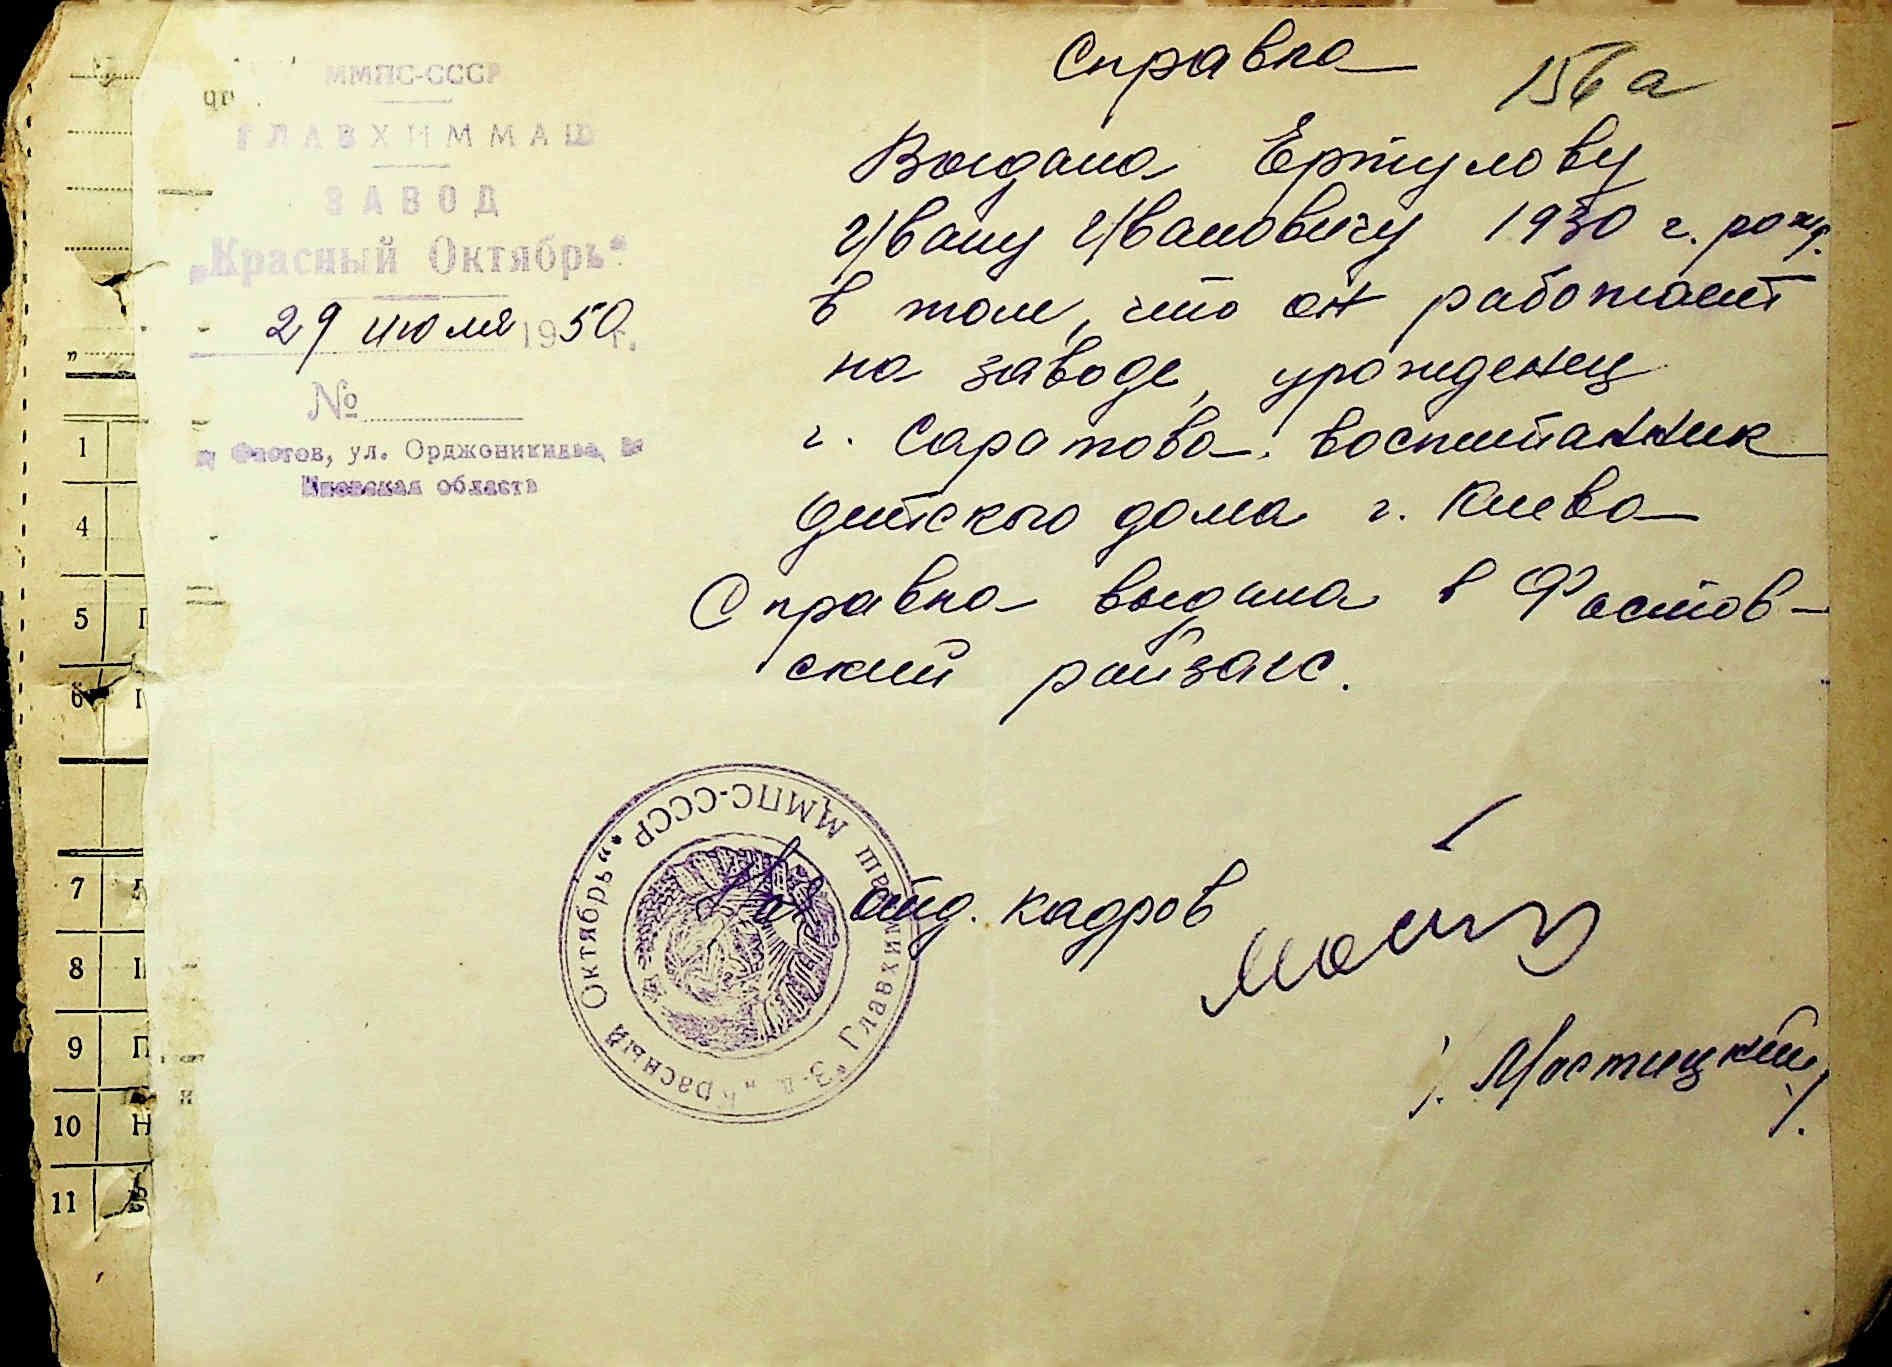 ММПС-СССР
ГЛАВХИММАШ
ЗАВОД
„Красный Октябрь"
29 июля 1950 г.
№
Фастов, ул. Орджоникидзе,
Киевская область
Справка
156а
Выдана Ертулову
Ивану Ивановичу 1930 г. рожд.
в том, что он работает
на заводе, урожденец
г. Саратова. воспитанник
детского дома г. Киева
Справка выдана в Фастов-
ский райзагс.
Зав отд. кадров
/. Мостицкий /.
ММПС-СССР
Главхиммаш
З-д „Красный Октябрь"
1
4
5
6
7
8
9 П
10 Н
11